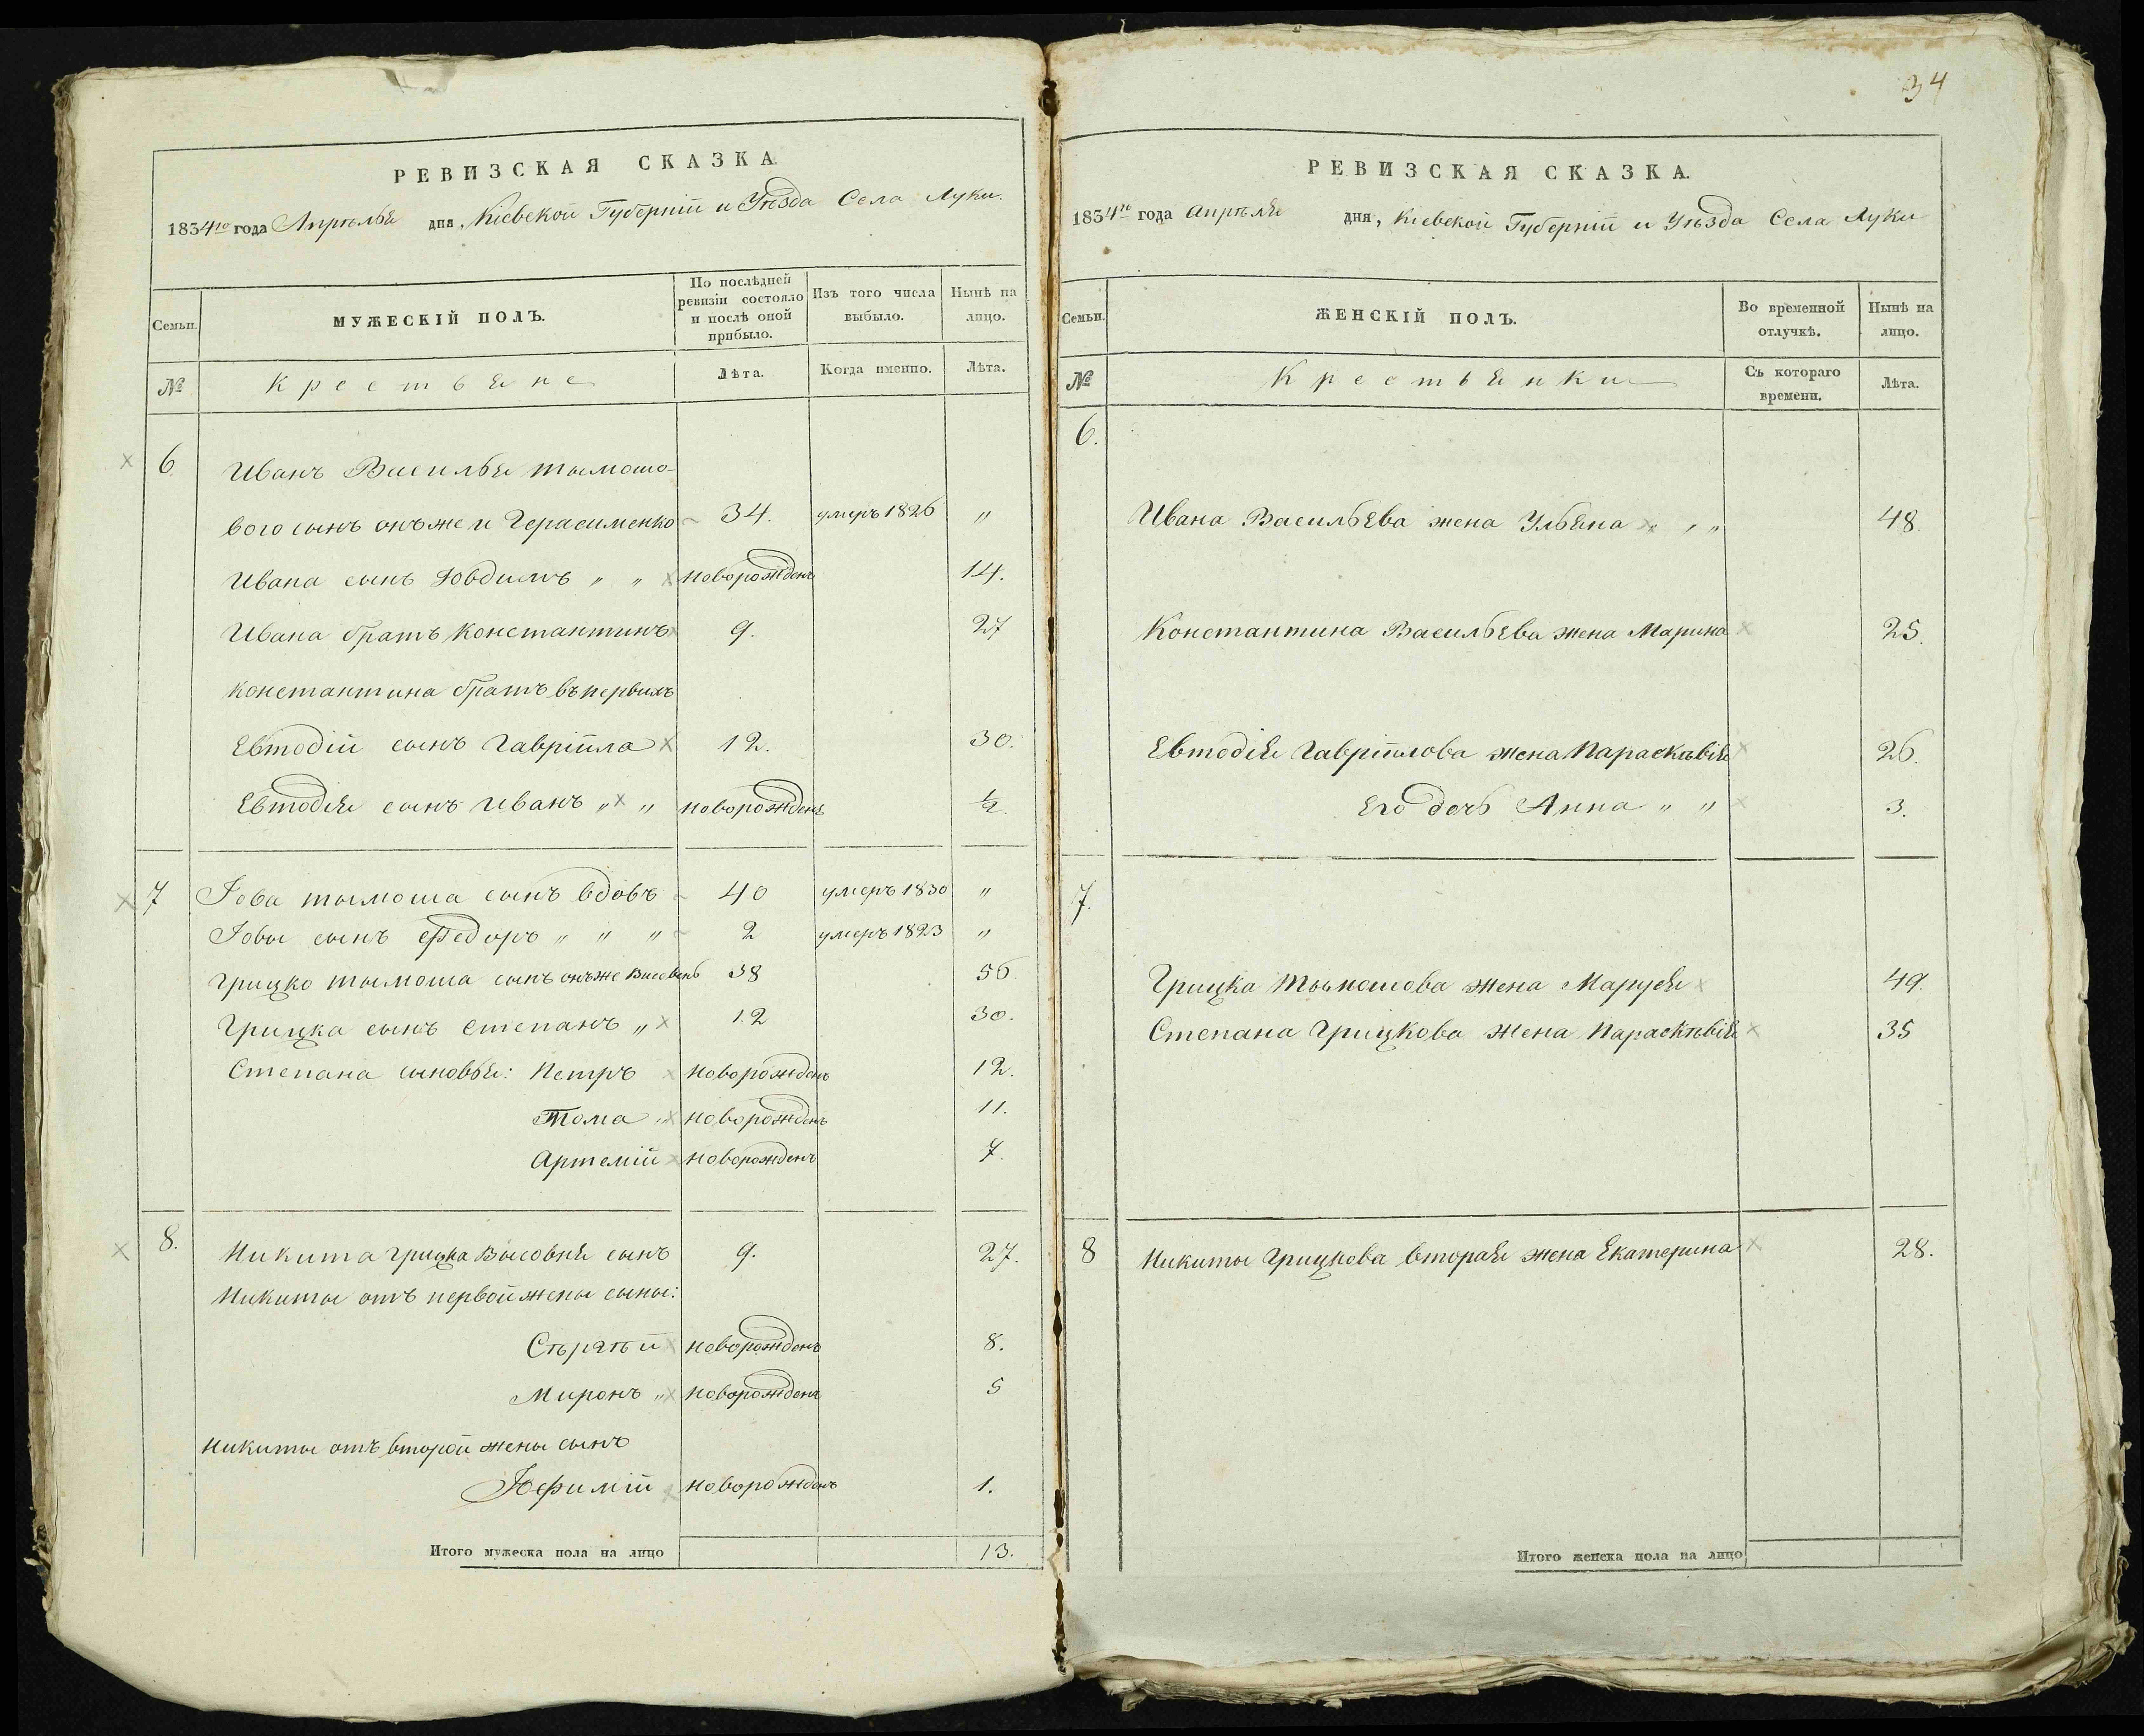 РЕВИЗСКАЯ СКАЗКА
1834го года Апрѣля дня, Кіевской Губерніи и Уѣзда Села Луки.
Семьи. МУЖЕСКІЙ ПОЛЪ. По послѣдней ревизіи состояло и послѣ оной прибыло. Изъ того числа выбыло. Нынѣ на лицо.
№ Крестьяне Лѣта. Когда именно. Лѣта.
6 Иванъ Василья тымошо-
вого сынъ онъ же и Герасименко 34. умеръ 1826 "
Ивана сынъ Іовдимъ " " новорожденъ 14.
Ивана братъ Константинъ 9. 27
Константина братъ въ первыхъ
Евтодій сынъ Гавріила 12. 30.
Евтодія сынъ Иванъ " " новорожденъ ½.
7 Іова тымоша сынъ вдовъ 40 умеръ 1830 "
Іовы сынъ Федоръ " " " 2 умеръ 1823 "
Грицко тымоша сынъ онъ же 38 56.
Грицка сынъ Степанъ " 12 30.
Степана сыновья: Петръ новорожденъ 12.
Тома " новорожденъ 11.
Артемій новорожденъ 7.
8. Никита Грицка Высовня сынъ 9. 27.
Никиты отъ первой жены сыны:
новорожденъ 8.
Миронъ " новорожденъ 5
Никиты отъ второй жены сынъ
Юфимій новорожденъ 1.
Итого мужеска пола на лицо 13.
34
РЕВИЗСКАЯ СКАЗКА.
1834го года Апрѣля дня, Кіевской Губерніи и Уѣзда Села Луки
Семьи. ЖЕНСКІЙ ПОЛЪ. Во временной отлучкѣ. Нынѣ на лицо.
№ Крестьянки Съ котораго времени. Лѣта.
6.
Ивана Васильева жена Ульяна " " 48.
Константина Васильева жена Марина 25.
Евтодія Гавріилова жена Параскѣвія 26.
Его дочь Анна " " 3.
7.
Грицка Тымошова жена Маруся 49.
Степана Грицкова жена Параскѣвія 35
8 Никиты Грицкова вторая жена Екатерина 28.
Итого женска пола на лицо